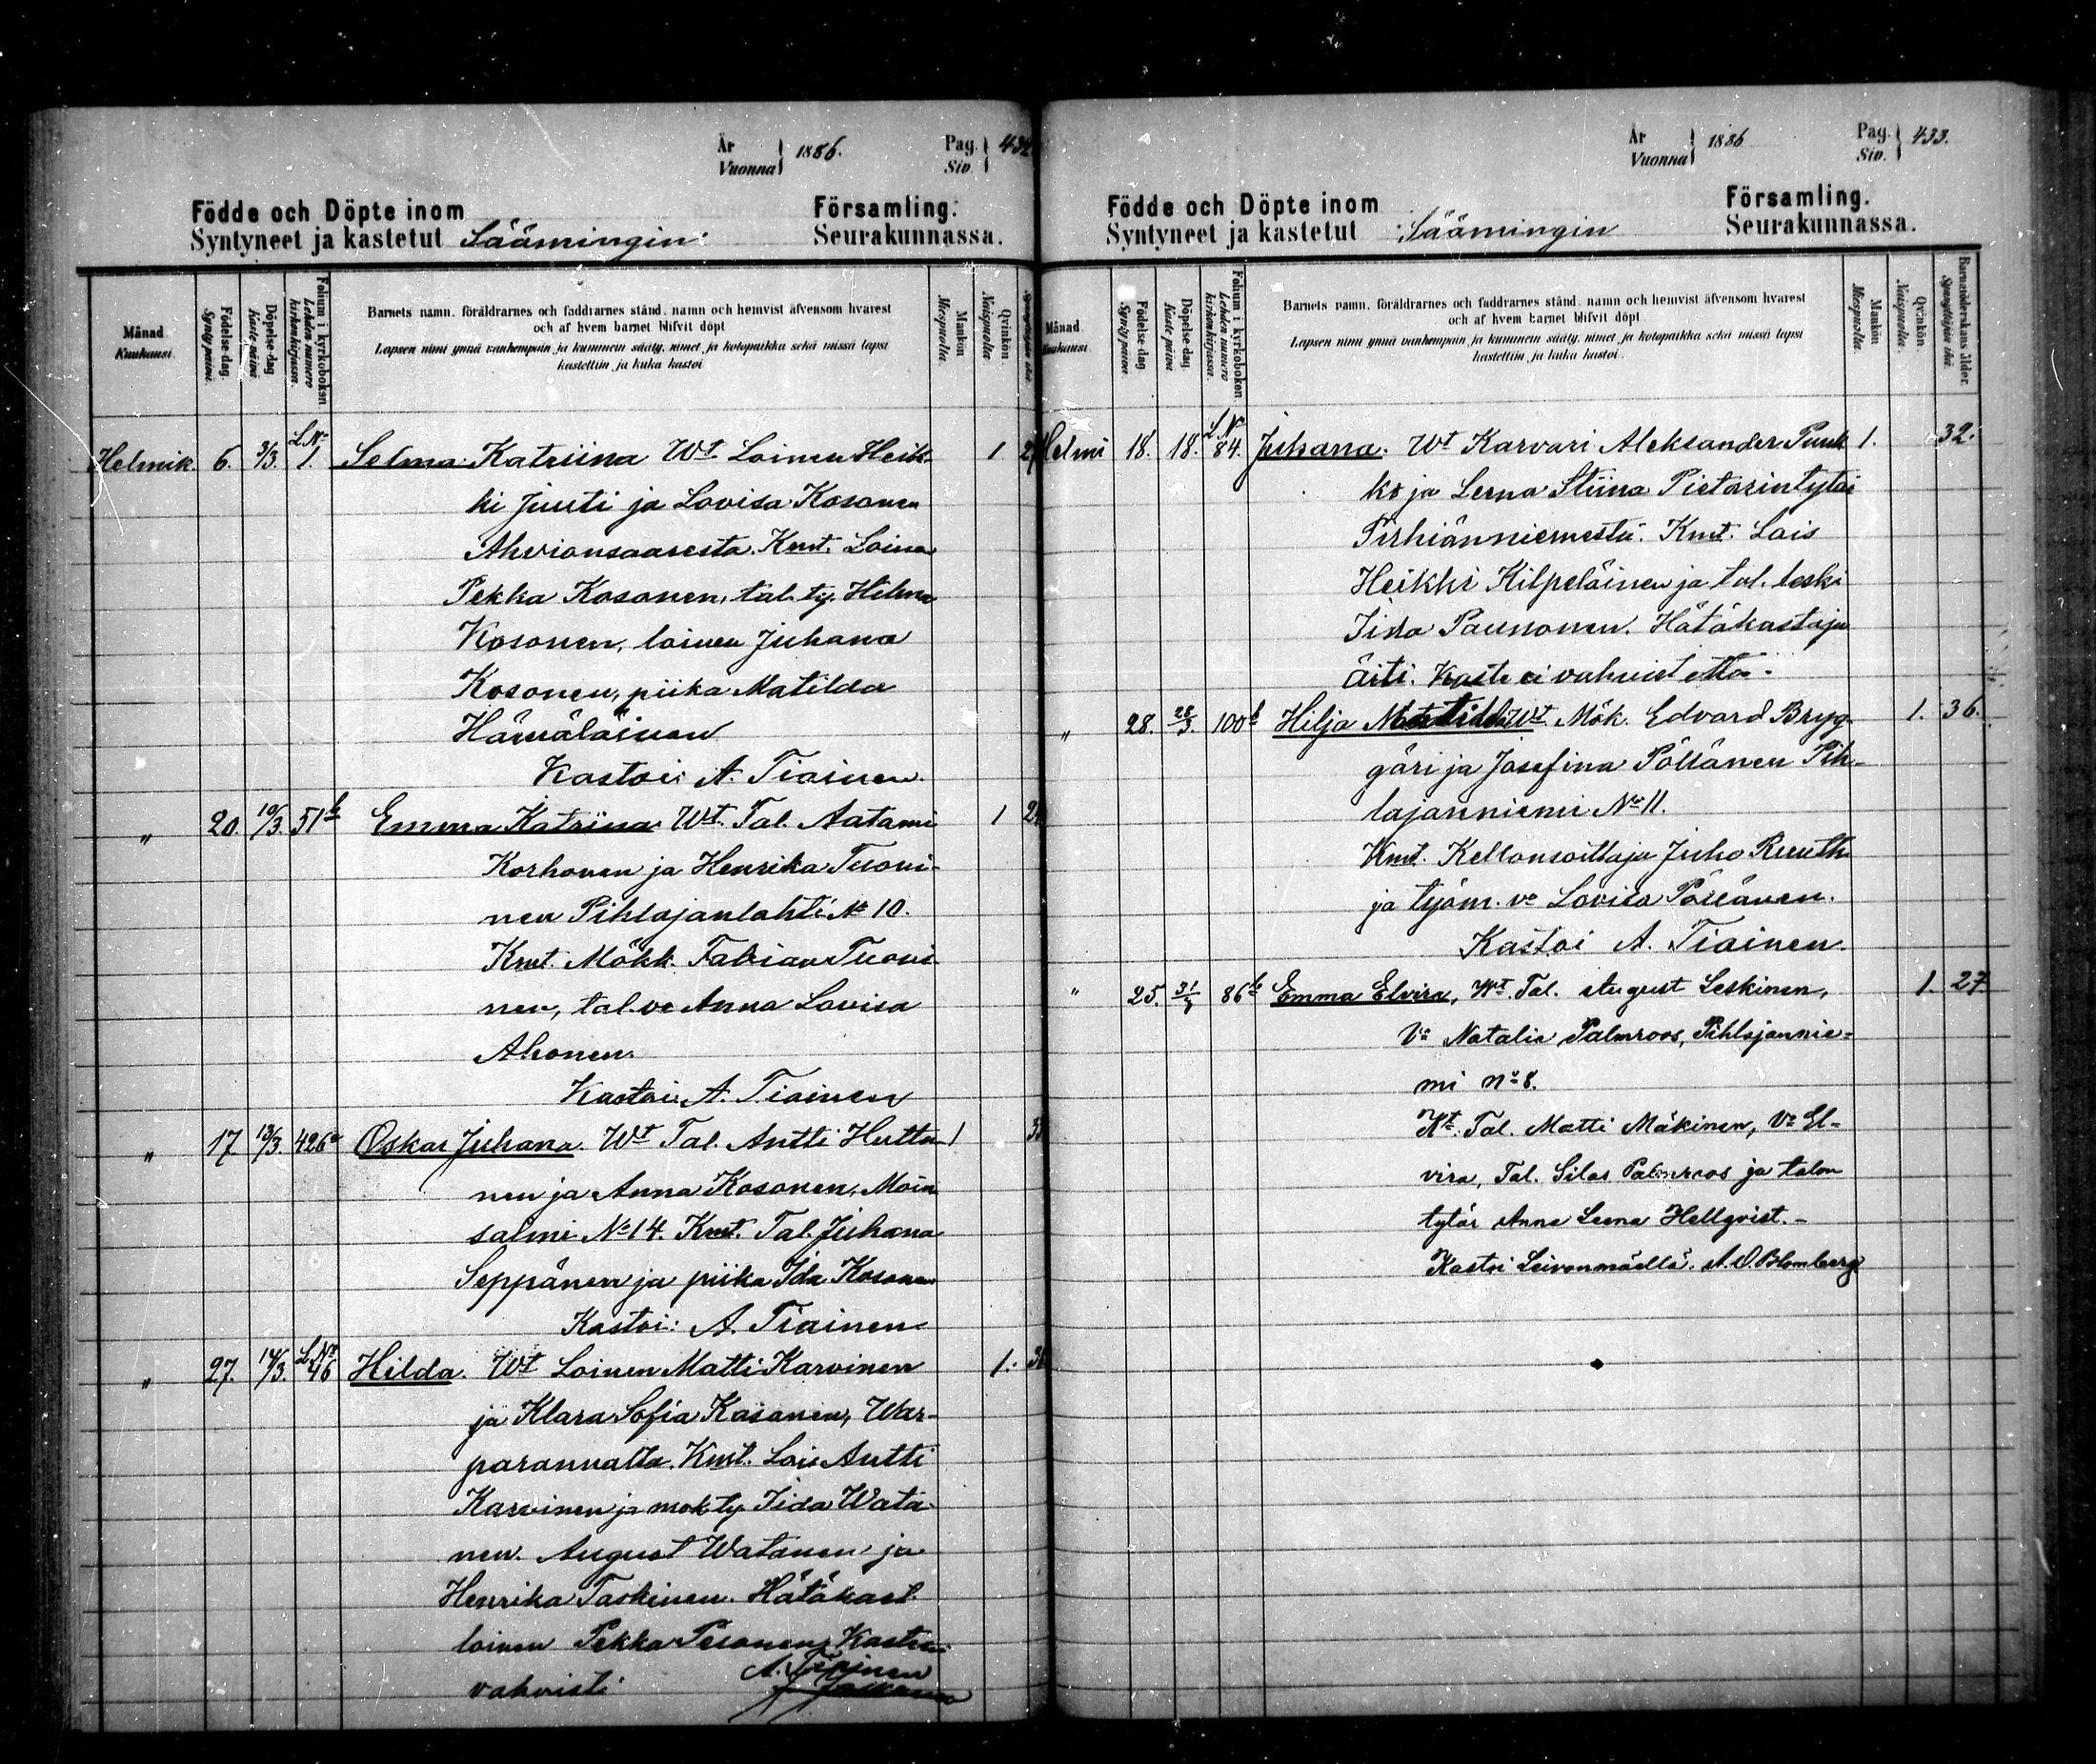 År
Vuonna
1886.
Pag.
Siv.
432
Födde och Döpte inom
Församling:
Syntyneet ja kastetut Säämingin
Seurakunnassa.
Månad
Kuukausi.
Födelse-dag.
Synty päivä.
Döpelse-dag
Kaste päivä
Folium i kyrkoboken
Lehden numero kirkonkirjassa.
Barnets namn, föräldrarnes och faddrarnes stånd, namn och hemvist äfvensom hvarest
och af hvem barnet blifvit döpt
Lapsen nimi ynnä vanhempain ja kummein sääty, nimet ja kotopaikka sekä missä lapsi
kastettiin ja kuka kastoi
Mankön
Miespuolia.
Qvinkön
Naispuolia
Helmik. 6. 3/3. L.No 1. Selma Katriina Wt. Loinen Heik- 1
ki Juuti ja Lovisa Kosonen
Ahvionsaaresta. Kmt. Loinen
Pekka Kosonen, tal. ty. Hilma
Kosonen, loinen Juhana
Kosonen, piika Matilda
Hämäläinen
Kastoi: A. Tiainen.
„ 20. 10/3. 51b Emma Katriina. Wt. Tal. Aatami 1
Korhonen ja Henrika Tuovi-
nen Pihlajanlahti No 10.
Kmt. Mökk. Fabian Tuovi-
nen, tal. vo Anna Lovisa
Ahonen.
Kastoi A. Tiainen
„ 17. 13/3. 426a Oskar Juhana. Wt Tal. Antti Hutta- 1
nen ja Anna Kosonen, Moin
salmi No 14. Kmt. Tal. Juhana
Seppänen ja piika Ida Kosonen
Kastoi: A. Tiainen
„ 27. 14/3. L.No 46 Hilda. Wt Loinen Matti Karvinen 1.
ja Klara Sofia Kosonen, War-
parannalta. Kmt. Lois Antti
Karvinen ja mök ty Iida Wata-
nen. August Watanen ja
Henrika Taskinen. Hätäkast.
loinen Pekka Pesonen, Kasteen
A. Tiainen
vahvisti
År
Vuonna
1886
Pag.
Siv.
433.
Födde och Döpte inom
Församling.
Syntyneet ja kastetut Säämingin
Seurakunnassa.
Månad
Kuukausi.
Födelse dag
Synty päivä
Döpelse-dag.
Kaste päivä
Folium i kyrkoboken
Lehden numero kirkonkirjassa.
Barnets namn, föräldrarnes och faddrarnes stånd, namn och hemvist äfvensom hvarest
och af hvem barnet blifvit döpt
Lapsen nimi ynnä vanhempain ja kummein sääty, nimet ja kotopaikka sekä missä lapsi
kastettiin ja kuka kastoi.
Mankön
Miespuolia.
Qvinkön.
Naispuolia.
Barnaföderskans ålder.
Synnyttäjän ikä.
Helmi 18. 18. L.No 84. Juhana. Wt Karvari Aleksander Puuk 1. 32.
ko ja Leena Stiina Pietarintytär
Pirhiänniemestä. Kmt. Lois
Heikki Kilpeläinen ja tal. leski
Iida Paunonen. Hätäkastaja
äiti. Kaste ei vahvistettu.
„ 28. 28/3. 100b Hilja Matilda Wt Mök. Edvard Bryg- 1. 36.
gäri ja Josefina Pöllänen Pih-
lajanniemi No 11.
Kmt. Kellonsoittaja Juho Ruuth
ja työm. vo Lovisa Pöllänen.
Kastoi A. Tiainen.
" 25. 31/3 86b Emma Elvira, Wt. Tal. August Leskinen, 1. 27.
Vo Natalia Palmroos, Pihlajannie-
mi No 8.
Kt. Tal. Matti Mäkinen, Vo El-
vira, Tal. Silas Palmroos ja talon
tytär Anna Leena Hellqvist.-
Kastoi Leivonmäellä. A. O. Blomberg